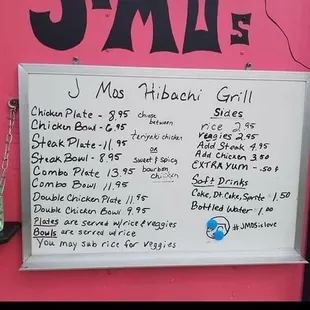 J-MOs
J Mos Hibachi Grill
Chicken Plate - 8.95
Chicken Bowl - 6.95
Steak Plate - 11.95
Steak Bowl - 8.95
Combo Plate 13.95
Combo Bowl 11.95
Double Chicken Plate 11.95
Double Chicken Bowl 9.95
Plates are served w/rice & veggies
Bowls are served w/rice
You may sub rice for veggies
chose between
teriyaki chicken
or
sweet & spicy
bourbon
chicken
Sides
rice 2.95
veggies 2.95
Add Steak 4.95
Add Chicken 3.50
EXTRA YUM - .50¢
Soft Drinks
Coke, Dt. Coke, Sprite - 1.50
Bottled Water - 1.00
#JMOSislove